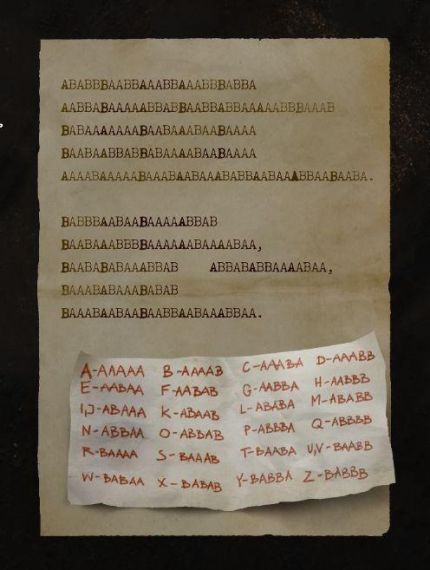 ABABBBAABBAAABBAAABBBABBA
AABBABAAAAABBABBAABBABBAAAAABBBAAAB
BABAAAAAAABAABAAABAABAAAA
BAABAABBABBABAAAABAABAAAA
AAABAAAAAABAAABAABAAABABBAABAAABBAABAABA.
BABBBAABAABAAAAABBAB
BAABAAABBBBAAAAAABAAAABAA,
BAABABABAAABBAB ABBABABBAAAABAA,
BAAABABAAABABAB
BAAABAABAABAABBAABAAABBAA.
A-AAAAA B-AAAAB C-AAABA D-AAABB
E-AABAA F-AABAB G-AABBA H-AABBB
I,J-ABAAA K-ABAAB L-ABABA M-ABABB
N-ABBAA O-ABBAB P-ABBBA Q-ABBBB
R-BAAAA S-BAAAB T-BAABA U,V-BAABB
W-BABAA X-BABAB Y-BABBA Z-BABBB